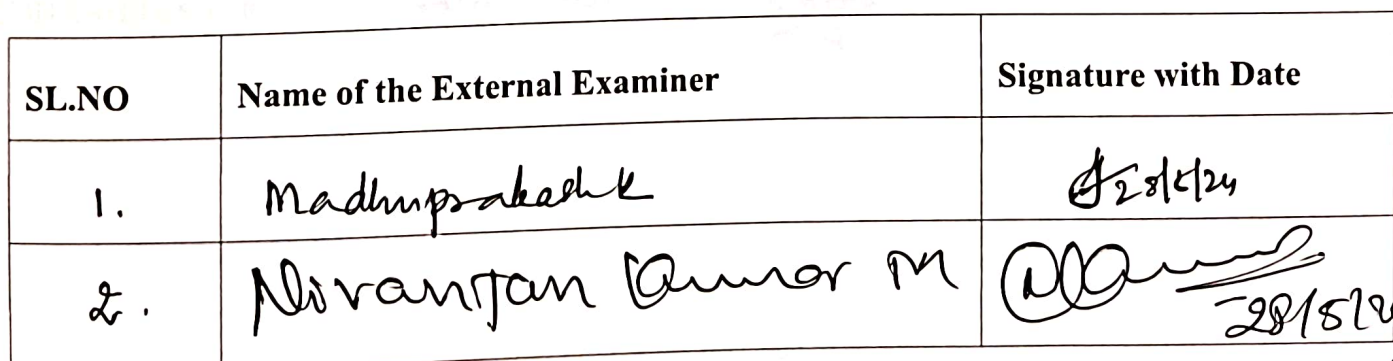 SL.NO Name of the External Examiner Signature with Date
1. Madhuprakash K 28/5/24
2. Niranjan Kumar M
28/5/2